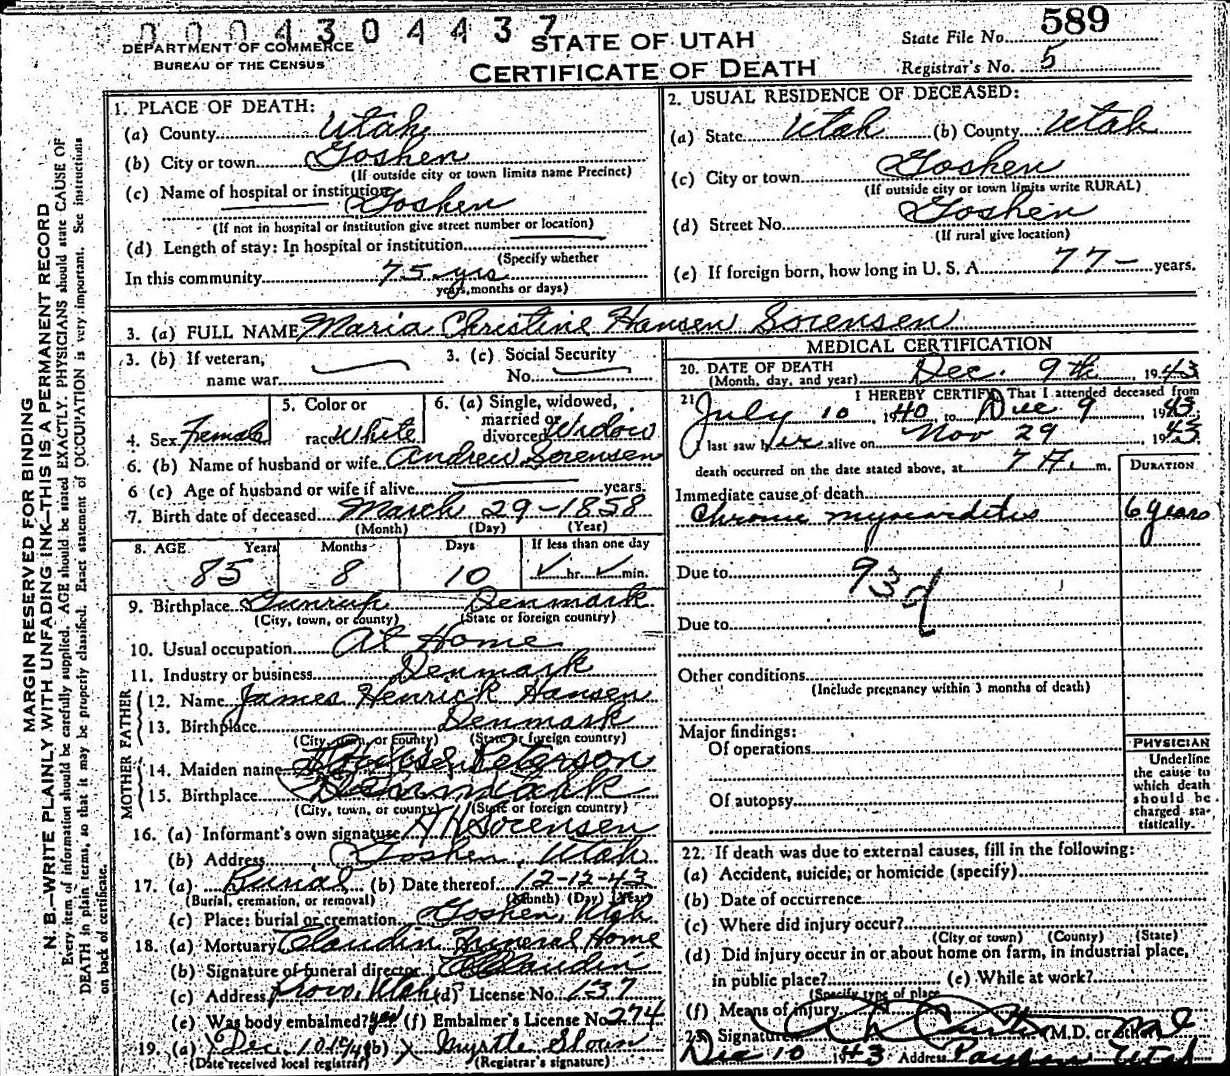 0004304437
DEPARTMENT OF COMMERCE
BUREAU OF THE CENSUS
STATE OF UTAH
CERTIFICATE OF DEATH
State File No. 589
Registrar's No. 5
MARGIN RESERVED FOR BINDING
N. B.—WRITE PLAINLY WITH UNFADING INK—THIS IS A PERMANENT RECORD
Every item of information should be carefully supplied. AGE should be stated EXACTLY. PHYSICIANS should state CAUSE OF
DEATH in plain terms, so that it may be properly classified. Exact statement of OCCUPATION is very important. See instructions
on back of certificate.
1. PLACE OF DEATH:
(a) County Utah
(b) City or town Goshen
(If outside city or town limits name Precinct)
(c) Name of hospital or institution Goshen
(If not in hospital or institution give street number or location)
(d) Length of stay: In hospital or institution
(Specify whether
In this community 75 yrs
years, months or days)
2. USUAL RESIDENCE OF DECEASED:
(a) State Utah (b) County Utah
(c) City or town Goshen
(If outside city or town limits write RURAL)
(d) Street No. Goshen
(If rural give location)
(e) If foreign born, how long in U. S. A. 77 – years.
3. (a) FULL NAME Maria Christine Hansen Sorensen
3. (b) If veteran, name war
3. (c) Social Security No.
4. Sex Female
5. Color or race White
6. (a) Single, widowed, married or divorced Widow
6. (b) Name of husband or wife Andrew Sorensen
6 (c) Age of husband or wife if alive years.
7. Birth date of deceased March 29-1858
(Month) (Day) (Year)
8. AGE Years Months Days If less than one day
85 8 10 ✓ hr. ✓ min.
9. Birthplace Denmark
(City, town, or county) (State or foreign country)
10. Usual occupation At Home
11. Industry or business Denmark
FATHER
12. Name James Henrick Hansen
13. Birthplace Denmark
(City, town, or county) (State or foreign country)
MOTHER
14. Maiden name Peterson
15. Birthplace Denmark
(City, town, or county) (State or foreign country)
16. (a) Informant's own signature Sorensen
(b) Address Goshen, Utah
17. (a) Burial (b) Date thereof 12-12-43
(Burial, cremation, or removal) (Month) (Day) (Year)
(c) Place: burial or cremation Goshen Utah
18. (a) Mortuary Claudin Funeral Home
(b) Signature of funeral director Claudin
(c) Address Provo, Utah (d) License No. 137
(e) Was body embalmed? yes (f) Embalmer's License No. 274
19. (a) Dec. 10 (b) Myrtle
(Date received local registrar) (Registrar's signature)
MEDICAL CERTIFICATION
20. DATE OF DEATH Dec. 9th 1943
(Month, day, and year)
21 I HEREBY CERTIFY, That I attended deceased from
July 10 1940 to Dec 9 1943
I last saw her alive on Nov 29 1943
death occurred on the date stated above, at 7 A. m.
DURATION
Immediate cause of death
Chronic myocarditis 6 years
Due to 93d
Due to
Other conditions
(Include pregnancy within 3 months of death)
Major findings:
Of operations
Of autopsy
PHYSICIAN
Underline
the cause to
which death
should be
charged sta-
tistically.
22. If death was due to external causes, fill in the following:
(a) Accident, suicide, or homicide (specify)
(b) Date of occurrence
(c) Where did injury occur?
(City or town) (County) (State)
(d) Did injury occur in or about home on farm, in industrial place,
in public place? (e) While at work?
(Specify type of place
(f) Means of injury
23. Signature (M.D. or other) MD
Dec 10 1943 Address Payson Utah